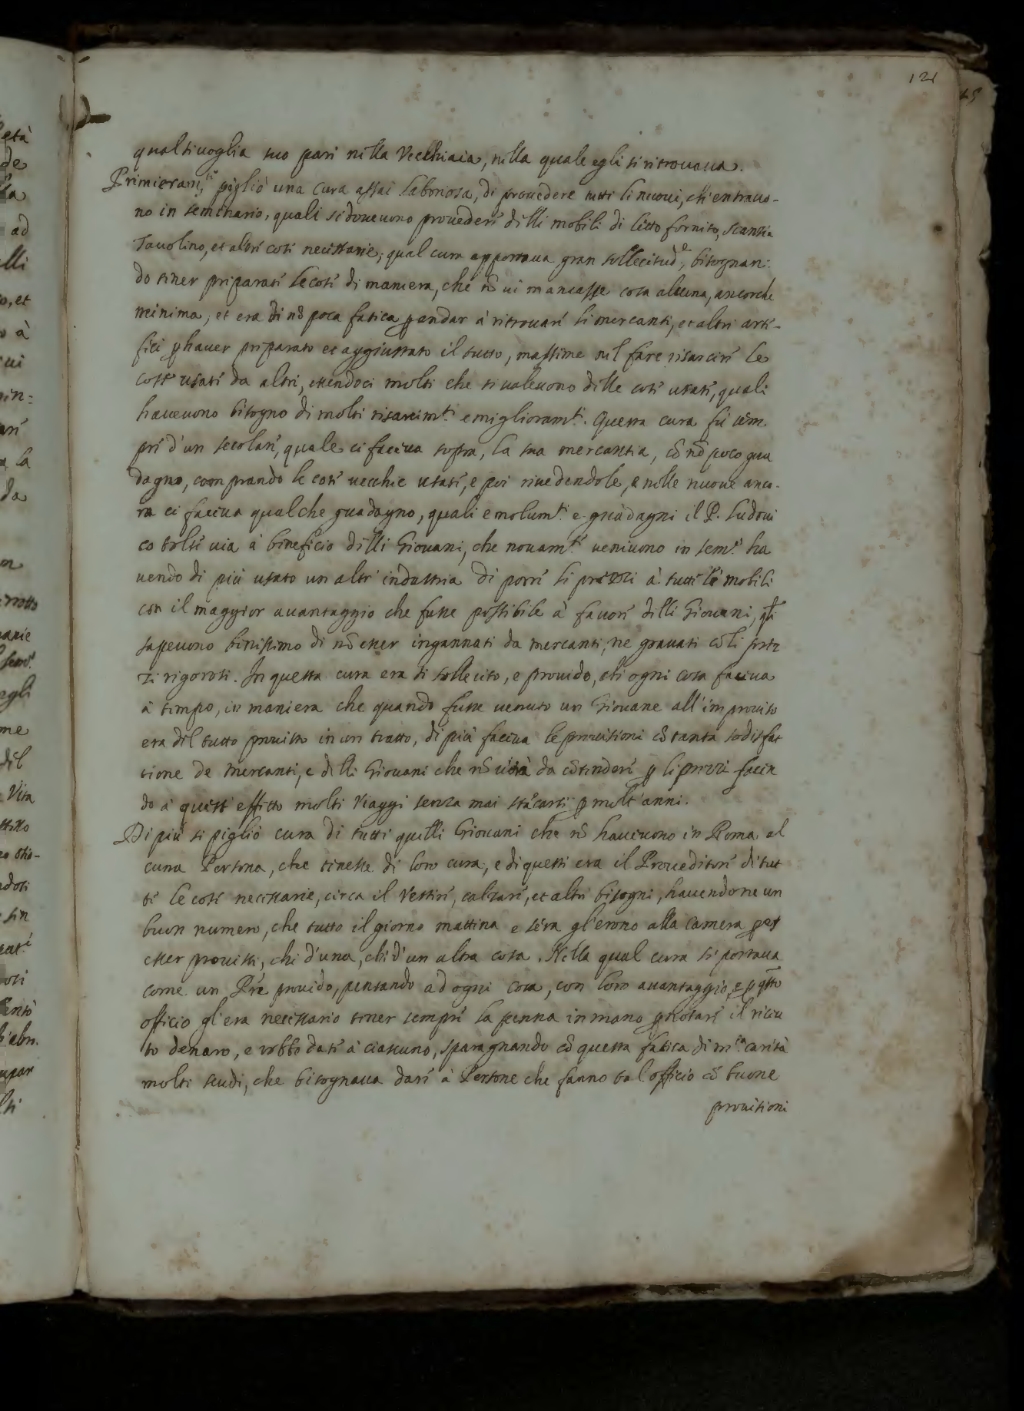 121
qualsivoglia suo pari nella Vecchiaia, nella quale egli si ritrovava.
Primieram.te pigliò una cura assai laboriosa, di provedere tutti li nuovi, ch'entravo-
no in seminario, quali si dovevono proveder' delli mobili di letto fornito, scantia
Tavolino, et altri cose necessarie; qual cura apportava gran sollecitud.e, bisognan:
do tener preparate le cose di maniera, che nõ vi mancasse cosa alcuna, ancorche
minima, et era di nõ poca fatica p andar à ritrovare li mercanti, et altri arte-
fici p haver preparato et aggiustato il tutto, massime nel fare risarcire le
cose usate da altri, essendoci molti che si valevono delle cose usate, quali
havevono bisogno di molti risarcim.ti e miglioram.ti. Questa cura fù sem
pre d'un secolare, quale ci faceva sopra, la sua mercantia, cõ nõ poco gua
dagno, comprando le cose vecchie usate, e poi rivedendole, e nelle nuove anco-
ra ci faceva qualche guadagno, quali emolum.ti e guadagni il P. Ludovi
co tolse via à beneficio delli Giovani, che novam.te venivono in sem.o ha
vendo di più usato un altr' industria di porre li prezzi à tutti le mobili
con il maggior avantaggio che fusse possibile à favore delli Giovani, q.li
sapevono benissimo di nõ esser ingannati da mercanti, ne gravati cõ li prez
zi rigorosi. In questa cura era sì sollecito, e provido, ch'ogni cosa faceva
à tempo, in maniera che quando fusse venuto un Giovane all'improviso
era del tutto provisto in un tratto, di più faceva le provisioni cõ tanta sodisfat
tione de mercanti, e delli Giovani che nõ v'era da cõtendere p li prezzi facen
do à quest' effetto molti viaggi senza mai stãcarsi p molt'anni.
Di più si pigliò cura di tutti quelli Giovani che nõ havevono in Roma al
cuna Persona, che tenesse di loro cura, e di questi era il Proveditore di tut
te le cose necessarie, circa il vestire, calzare, et altri bisogni, havendone un
buon numero, che tutto il giorno mattina e sera gl'erono alla camera per
esser provisti, chi d'una, chi d'un altra cosa. Nella qual cura si portava
come un P̃re provido, pensando ad ogni cosa, con loro avantaggio, e p q̃sto
officio gl'era necessario tener sempre la penna in mano p notare il ricevu
to denaro, e robbe date à ciascuno, sparagnando cõ questa fatica di m.ta carità
molti scudi, che bisognava dare à Persone che fanno tal officio cõ buone
provisioni